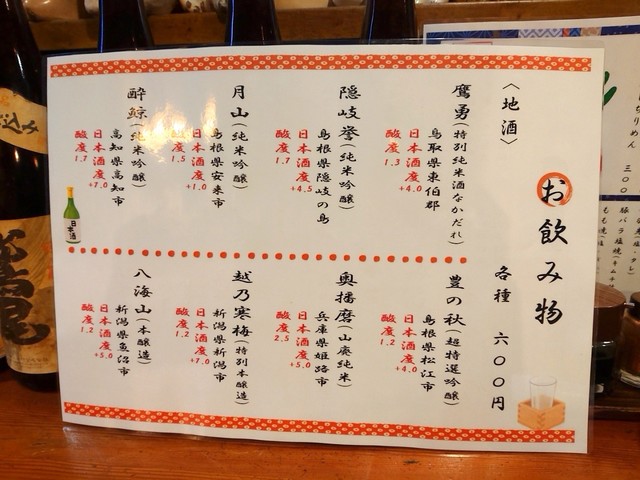 お飲み物
〈地酒〉
各種 六〇〇円
鷹勇(特別純米酒なかだれ)
鳥取県東伯郡
日本酒度+4.0
酸度1.3
隠岐誉(純米吟醸)
島根県隠岐の島
日本酒度+4.5
酸度1.7
月山(純米吟醸)
島根県安来市
日本酒度+1.0
酸度1.5
酔鯨(純米吟醸)
高知県高知市
日本酒度+7.0
酸度1.7
豊の秋(超特選吟醸)
島根県松江市
日本酒度+4.0
酸度1.2
奥播磨(山廃純米)
兵庫県姫路市
日本酒度+5.0
酸度2.5
越乃寒梅(特別本醸造)
新潟県新潟市
日本酒度+7.0
酸度1.2
八海山(本醸造)
新潟県魚沼市
日本酒度+5.0
酸度1.2
日本酒